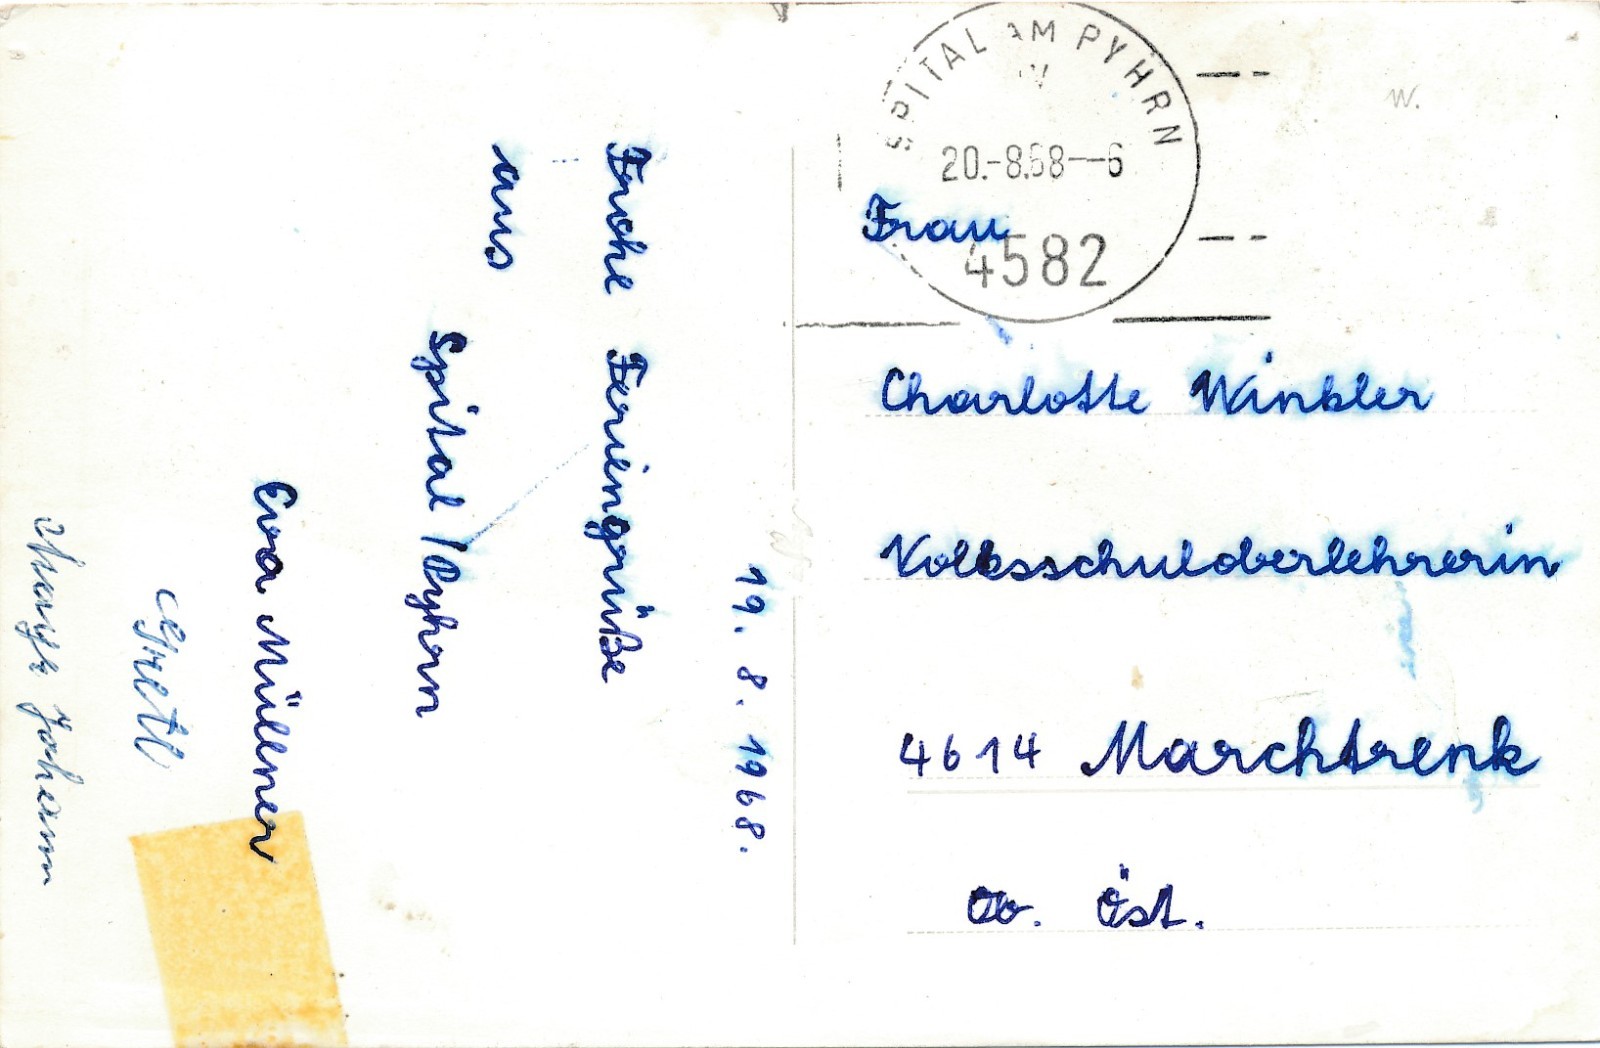 19. 8. 1968.
Frohe Feriengrüße
aus
Spital / Pyhrn
Eva Müllner
Gretl
Johann
SPITAL AM PYHRN
20.-8.68--6
4582
W.
Frau
Charlotte Winkler
Volksschuloberlehrerin
4614 Marchtrenk
Ob. Öst.